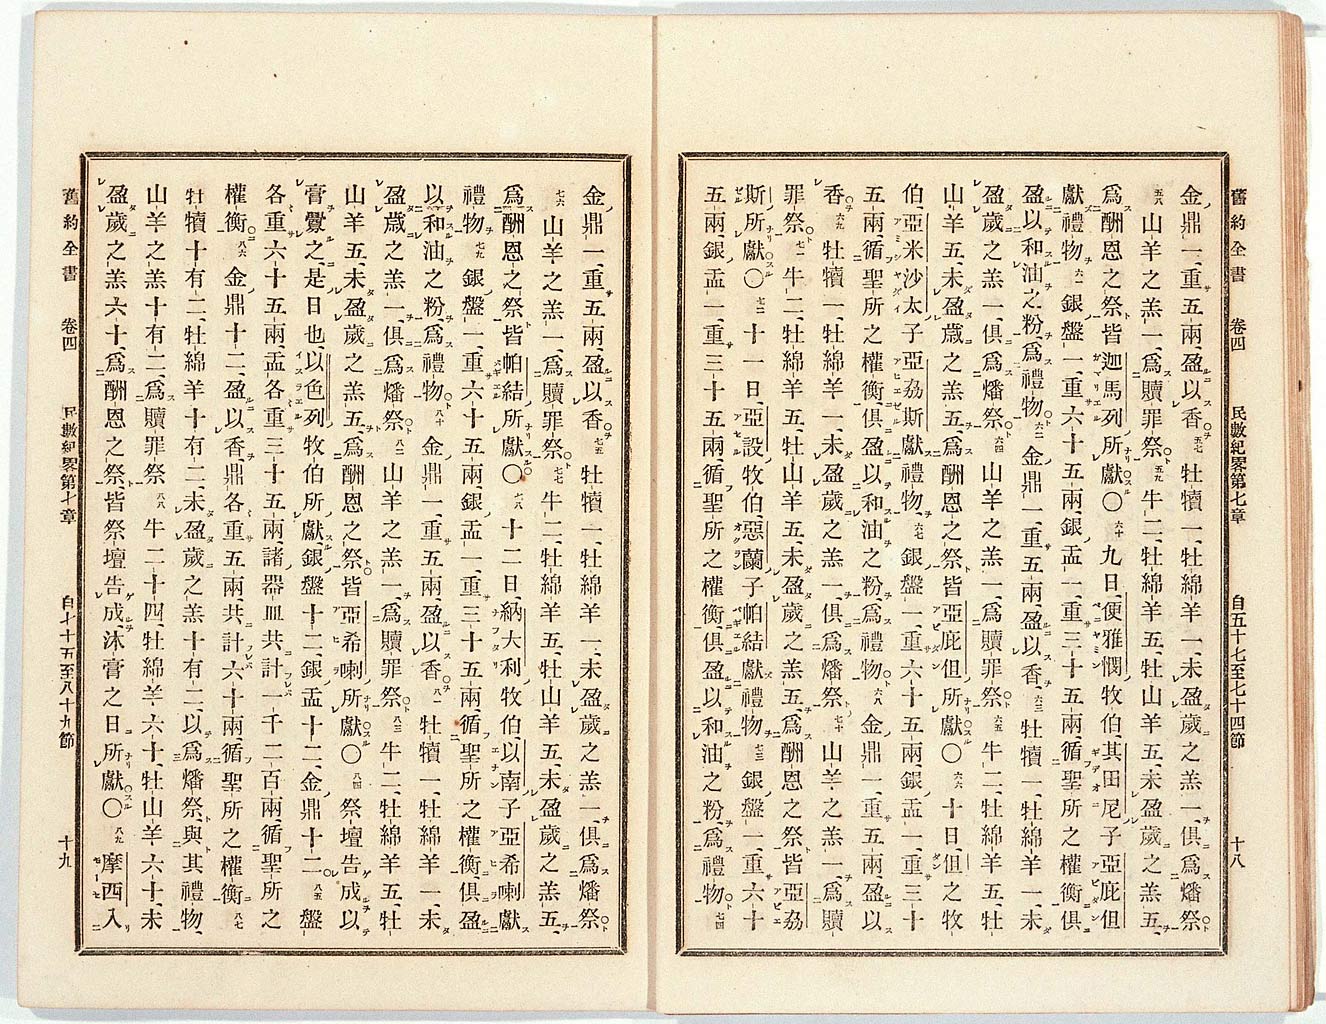 舊約全書 卷四 民數紀畧第七章 自五十七至七十四節 十八
金鼎一、重五兩、盈以香、五七牡犢一、牡綿羊一、未盈歲之羔一、俱爲燔祭、
五八山羊之羔一、爲贖罪祭、五九牛二、牡綿羊五、牡山羊五、未盈歲之羔五、
爲酬恩之祭、皆迦馬列所獻〇六十九日、便雅憫牧伯、其田尼子亞庇但
獻禮物、六一銀盤一、重六十五兩、銀盂一、重三十五兩、循聖所之權衡、俱
盈以和油之粉、爲禮物、六二金鼎一、重五兩、盈以香、六三牡犢一、牡綿羊一、未
盈歲之羔一、俱爲燔祭、六四山羊之羔一、爲贖罪祭、六五牛二、牡綿羊五、牡
山羊五、未盈歲之羔五、爲酬恩之祭、皆亞庇但所獻〇六六十日、但之牧
伯、亞米沙太子亞荔斯獻禮物、六七銀盤一、重六十五兩、銀盂一、重三十
五兩、循聖所之權衡、俱盈以和油之粉、爲禮物、六八金鼎一、重五兩、盈以
香、六九牡犢一、牡綿羊一、未盈歲之羔一、俱爲燔祭、七十山羊之羔一、爲贖
罪祭、七一牛二、牡綿羊五、牡山羊五、未盈歲之羔五、爲酬恩之祭、皆亞荔
斯所獻〇七二十一日、亞設牧伯、惡蘭子帕結獻禮物、七三銀盤一、重六十
五兩、銀盂一、重三十五兩、循聖所之權衡、俱盈以和油之粉、爲禮物、七四
金鼎一、重五兩、盈以香、七五牡犢一、牡綿羊一、未盈歲之羔一、俱爲燔祭、
七六山羊之羔一、爲贖罪祭、七七牛二、牡綿羊五、牡山羊五、未盈歲之羔五、
爲酬恩之祭、皆帕結所獻〇七八十二日、納大利牧伯、以南子亞希喇獻
禮物、七九銀盤一、重六十五兩、銀盂一、重三十五兩、循聖所之權衡、俱盈
以和油之粉、爲禮物、八十金鼎一、重五兩、盈以香、八一牡犢一、牡綿羊一、未
盈歲之羔一、俱爲燔祭、八二山羊之羔一、爲贖罪祭、八三牛二、牡綿羊五、牡
山羊五、未盈歲之羔五、爲酬恩之祭、皆亞希喇所獻〇八四祭壇告成、以
膏釁之、是日也、以色列牧伯所獻、銀盤十二、銀盂十二、金鼎十二、八五盤
各重六十五兩、盂各重三十五兩、諸器皿共計一千二百兩、循聖所之
權衡、八六金鼎十二、盈以香、鼎各重五兩、共計六十兩、循聖所之權衡、八七
牡犢十有二、牡綿羊十有二、未盈歲之羔十有二、以爲燔祭、與其禮物、
山羊之羔十有二、爲贖罪祭、八八牛二十四、牡綿羊六十、牡山羊六十、未
盈歲之羔六十、爲酬恩之祭、皆祭壇告成、沐膏之日所獻〇八九摩西入
舊約全書 卷四 民數紀畧第七章 自七十五至八十九節 十九